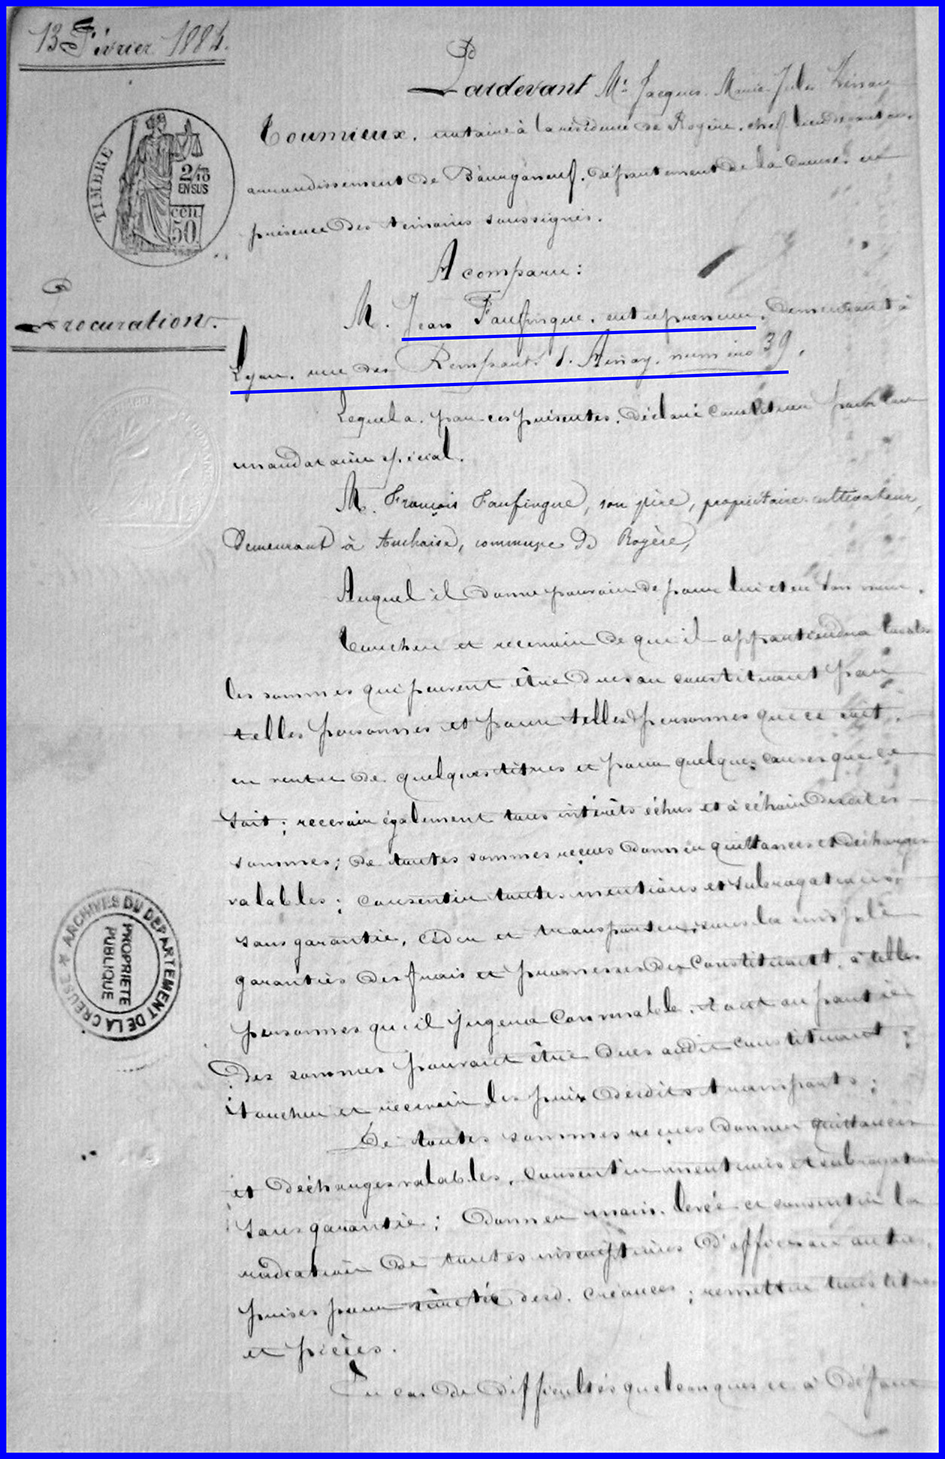 13 Février 1884.
Pardevant Me Jacques Marie Jules
Toumieux, notaire à la résidence de Royère, chef lieu de canton,
TIMBRE
2/10
EN SUS
50
CEN
arrondissement de Bourganeuf, département de la Creuse, en
présence des témoins soussignés.
A comparu:
Procuration.
M. Jean Faufingue, entrepreneur, demeurant à
Lyon, rue des Remparts d'Ainay, numéro 39,
Lequel a, par ces présentes, déclaré constituer pour son
mandataire spécial.
M. François Faufingue, son père, propriétaire-cultivateur,
demeurant à Auchaise, commune de Royère,
Auquel il donne pouvoir de pour lui et en son nom.
Toucher et recevoir de qui il appartiendra toutes
les sommes qui peuvent être dues au constituant par
telles personnes et pour telles personnes que ce soit,
en vertu de quelques titres et pour quelques causes que ce
soit; recevoir également tous intérêts échus et à échoir desdites
sommes; de toutes sommes reçues donner quittances et décharges
valables; consentir toutes mentions et subrogations,
sans garantie, céder et transporter, sous la simple
garantie des frais et promesses du constituant, à telles
personnes qu'il jugera convenable, tout ou partie
ARCHIVES DU DEPARTEMENT DE LA CREUSE
PROPRIETE
PUBLIQUE
des sommes pouvant être dues audit constituant;
toucher et recevoir les prix desdits transports;
De toutes sommes reçues donner quittances
et décharges valables, consentir mentions et subrogations
sans garantie; donner main-levée et consentir la
radiation de toutes inscriptions d'office ou autres,
prises pour sûreté desd. créances; remettre tous titres
et pièces.
En cas de difficultés quelconques et à défaut